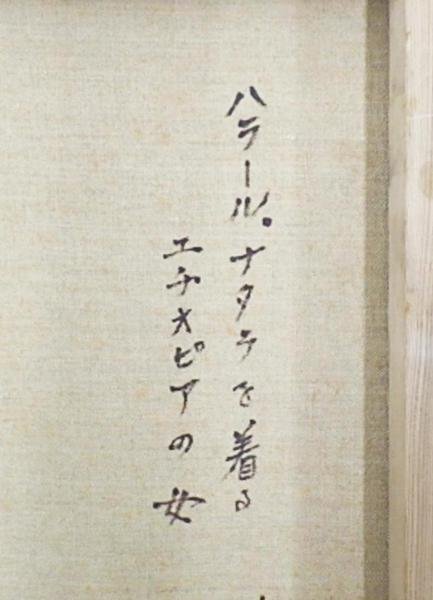 ハラール。ナタラを着る
エチオピアの女